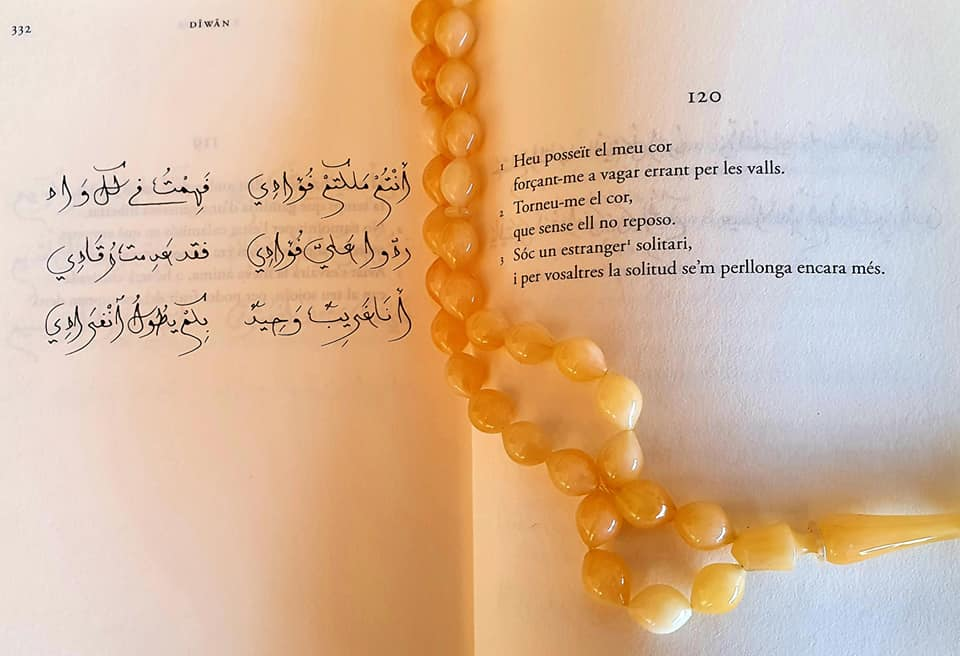 332
DĪWĀN
أنتُمْ مَلكتمْ فُؤَادِي فَهِمْتُ في كل وَادِ
ردّوا عَليّ فُؤَادِي فقد عدمت رُقَادِي
أنَا غَرِيبٌ وَحِيدٌ بِكمْ يطُولُ ٱنْفرَادِي
120
1 Heu posseït el meu cor
forçant-me a vagar errant per les valls.
2 Torneu-me el cor,
que sense ell no reposo.
3 Sóc un estranger¹ solitari,
i per vosaltres la solitud se’m perllonga encara més.